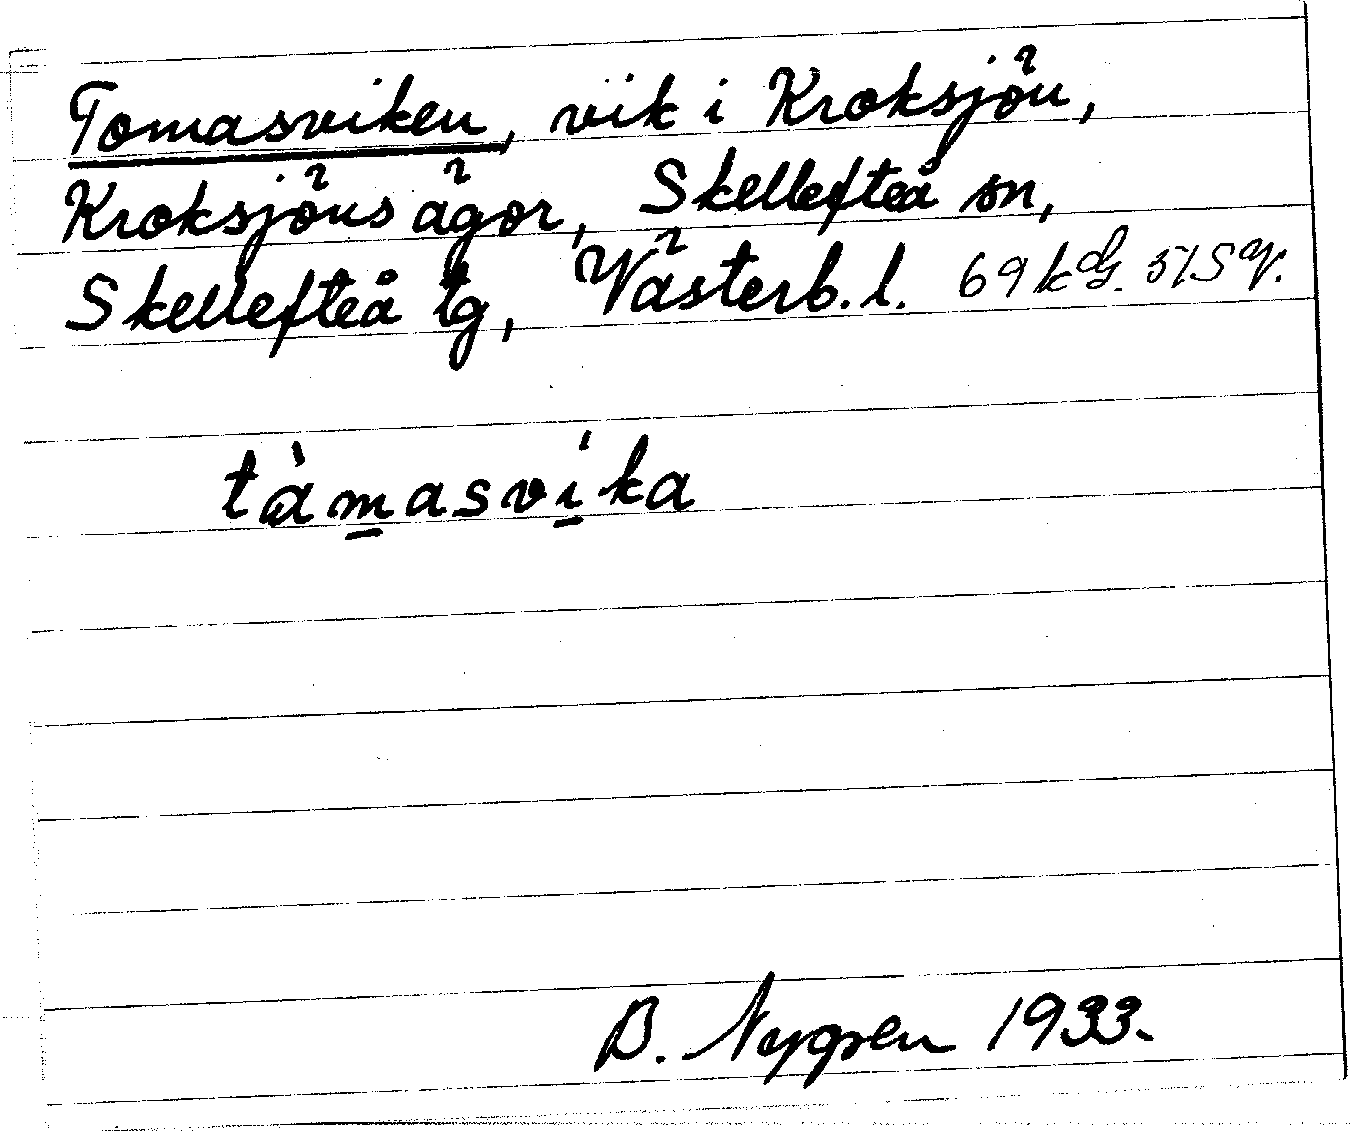 Tomasviken, vik i Kroksjön,
Kroksjöns ägor, Skellefteå sn,
Skellefteå tg, Västerb. l.
tàm̲asví̲ka
B. Nygren 1933.